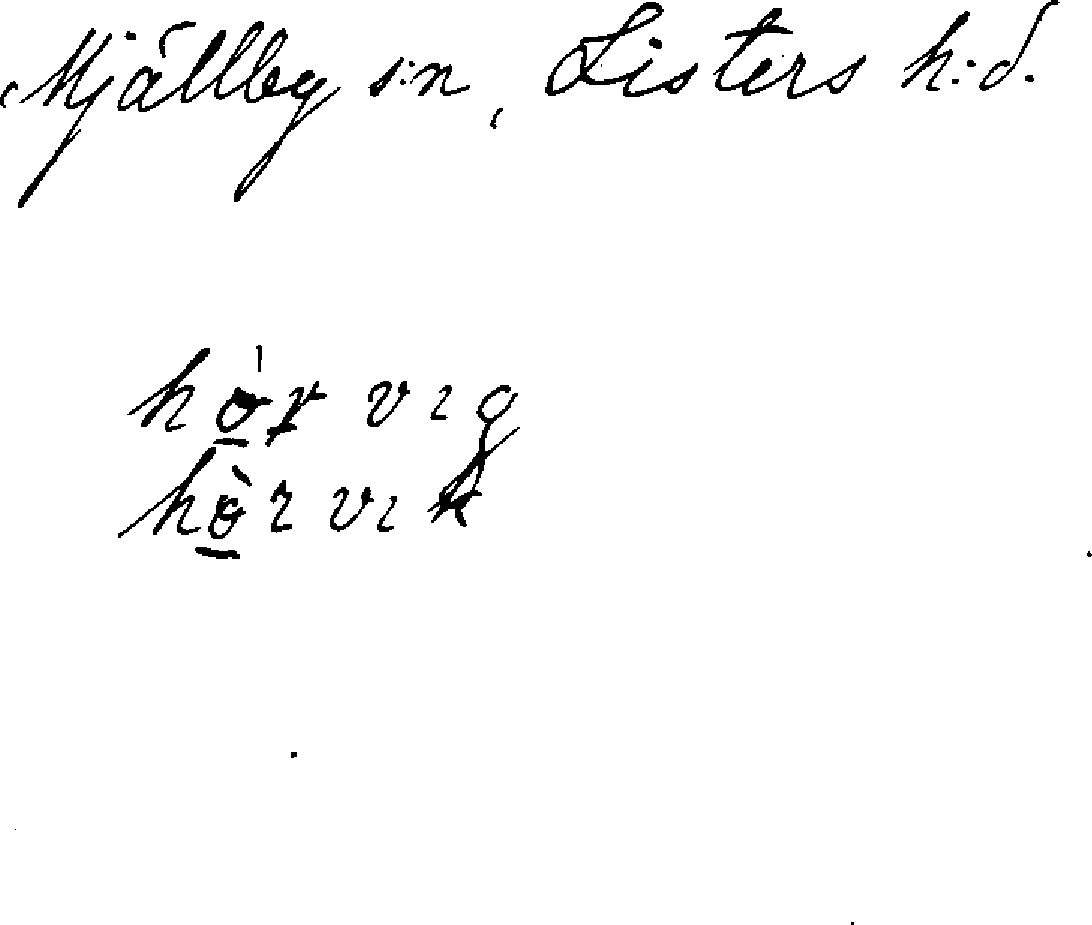 Mjällby s:n, Listers h:d.
hò̲r vıg
hò̲r vık